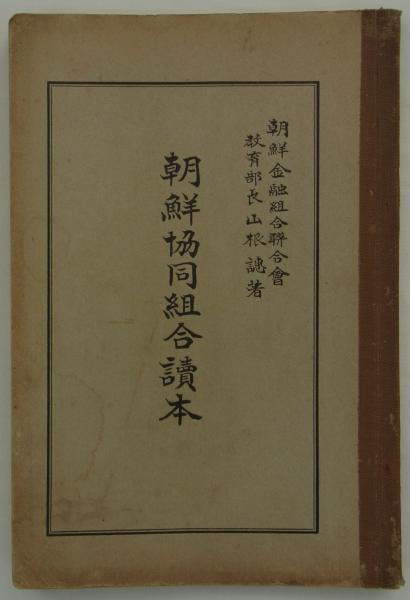 朝鮮金融組合聯合會
教育部長山根譓著
朝鮮協同組合讀本